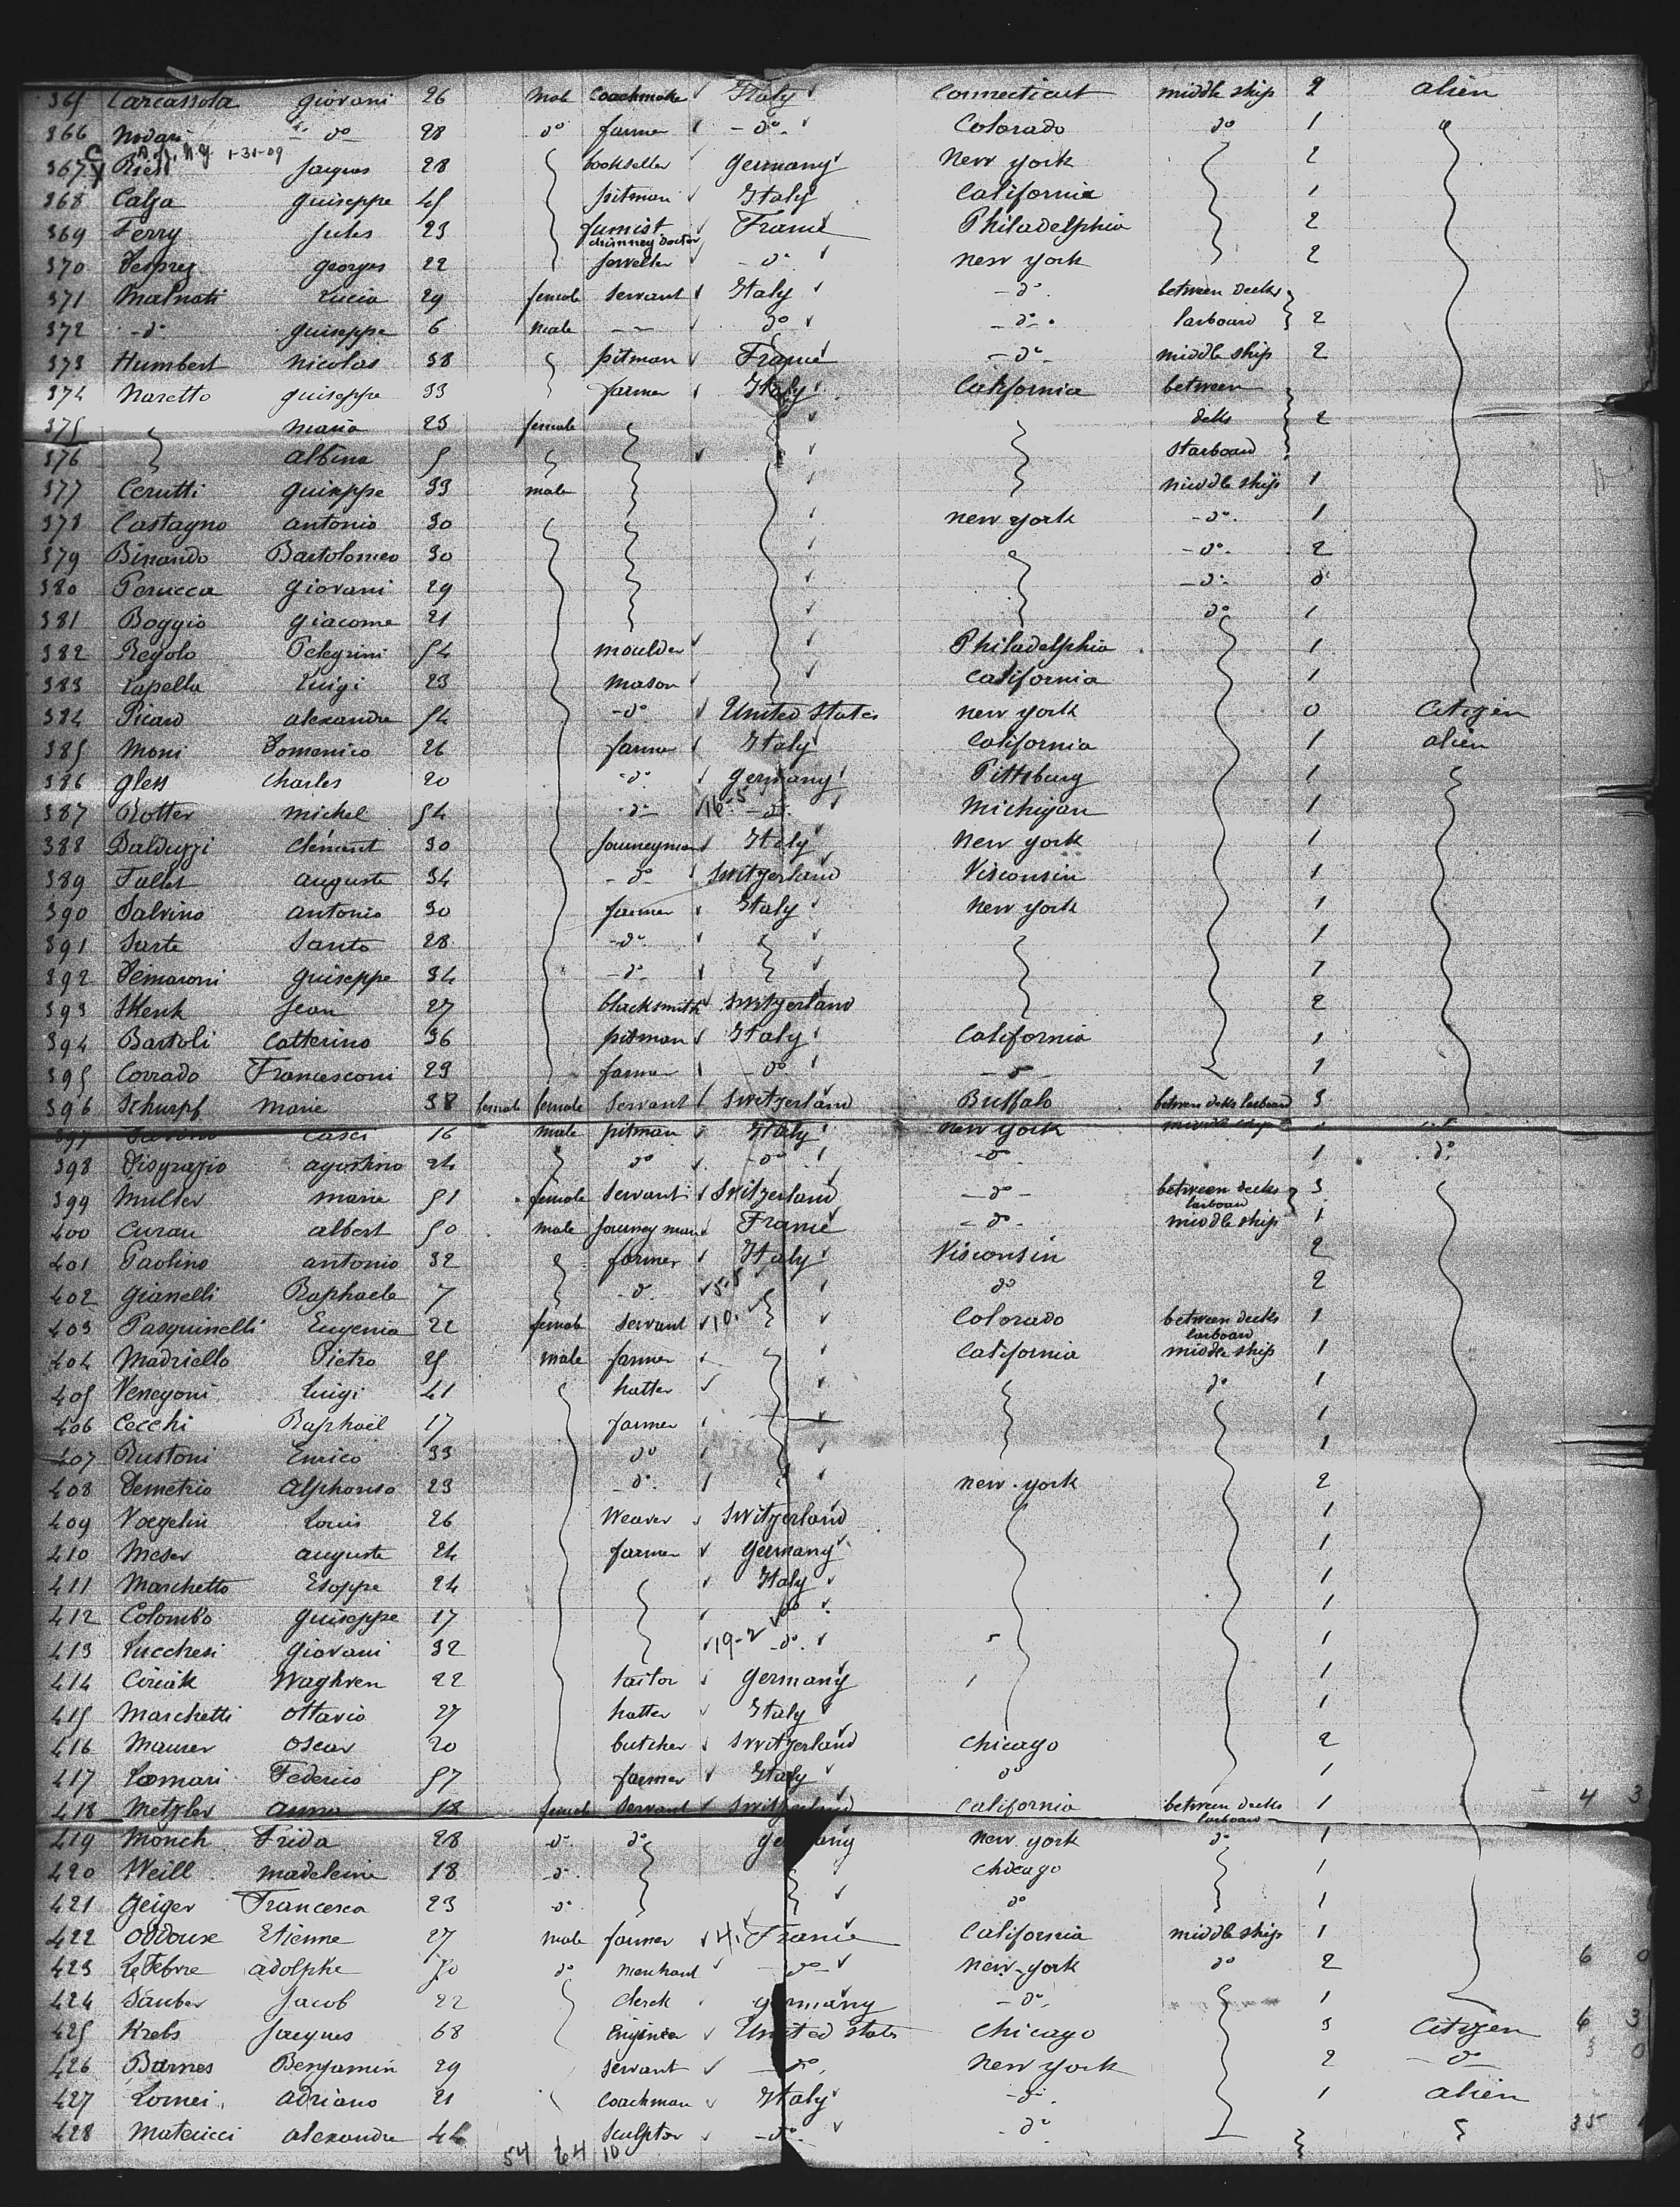 365 Carcassola Giovani 26 male Coachmake Italy Connecticut middle ship 2 alien
366 Nodari do 28 do farmer do Colorado do 1
1-31-09
367 Jacques 28 bookseller Germany New york 2
368 Calza Guiseppe 45 pitman Italy California 1
369 Ferry Jules 23 fumist France Philadelphia 2
chimney doctor
370 Desprez Georges 22 Jeweller do New york 2
371 Malnati Lucia 29 female servant Italy do between decks
372 do Guiseppe 6 male do do larboard 2
373 Humbert Nicolas 38 pitman France do middle ship 2
374 Naretto Guiseppe 33 farmer Italy California between
375 Maria 23 female decks 2
376 albina 5 starboard
377 Cerutti Guiseppe 33 male middle ship 1
378 Castagno antonio 30 New york do 1
379 Binando Bartolomeo 30 do 2
380 Perucca Giovani 29 do
381 Boggio Giacome 21 do 1
382 Regolo Pelegrini 54 moulder Philadelphia 1
383 Lapella Luigi 23 mason California 1
384 Picard alexandre 54 do United States New york 0 Citizen
385 Moni Domenico 26 farmer Italy California 1 alien
386 Gless Charles 20 do Germany Pittsburg 1
387 Rotter Michel 54 do 16-5 do Michigan 1
388 Balduzzi Clément 30 Journeyman Italy New york 1
389 Fallet auguste 34 do Switzerland Visconsin 1
390 Salvino antonio 30 farmer Italy New york 1
391 Sarte Santo 28 do 1
392 Demaroni Guiseppe 34 do 1
393 Skenk Jean 27 blacksmith Switzerland 2
394 Bartoli Catterino 36 pitman Italy California 1
395 Corrado Francesconi 23 farmer do do 1
396 Schurpf Marie 38 female female Servant Switzerland Buffalo between decks larboard 3
397 Casci 16 male pitman Italy New york middle ship
398 Disgrazio agostino 24 do do do 1 do
399 Muller Marie 51 female Servant Switzerland do between decks 3
larboard
400 Curau albert 50 male Journey man France do middle ship 1
401 Paolino antonio 32 farmer Italy Visconsin 2
402 Gianelli Raphaele 7 do 5-5 do 2
403 Pasquinelli Eugenia 22 female servant 10. Colorado between decks 1
larboard
404 Madriello Pietro 25 male farmer California middle ship 1
405 Venegoni Luigi 41 hatter do 1
406 Cecchi Raphaël 17 farmer 1
407 Rustoni Enrico 33 do 1
408 Demetrio Alphonso 23 do New-york 2
409 Voegelin Louis 26 Weaver Switzerland 1
410 Meser auguste 24 farmer Germany 1
411 Marchetto Esoppe 24 Italy 1
412 Colombo Guiseppe 17 do 1
413 Lucchesi Giovani 32 19-2 do 1
414 Ciriak Waghren 22 tailor Germany 1
415 Marchetti Ottavio 27 hatter Italy 1
416 Maurer Oscar 20 butcher Switzerland Chicago 2
417 Federico 57 farmer Italy do 1
418 Metzler anna 18 female Servant Switzerland California between decks 1 4 3
larboard
419 Monch Frida 28 do do Germany New york do 1
420 Weill Madeleine 18 do Chicago 1
421 Geiger Francesca 23 do do 1
422 Oddoux Etienne 27 male farmer France California middle ship 1
423 LeFebvre adolphe 50 do Merchant do New-york do 2 6 0
424 Sauber Jacob 22 Clerck Germany do 1
425 Krebs Jacques 68 Engineer United States Chicago 3 Citizen 6 3
426 Barnes Benjamin 29 servant do New york 2 do 3 0
427 Lomei adriano 21 Coachman Italy do 1 alien
428 Mateucci alexandre 44 Sculptor do do 35
54 64 10